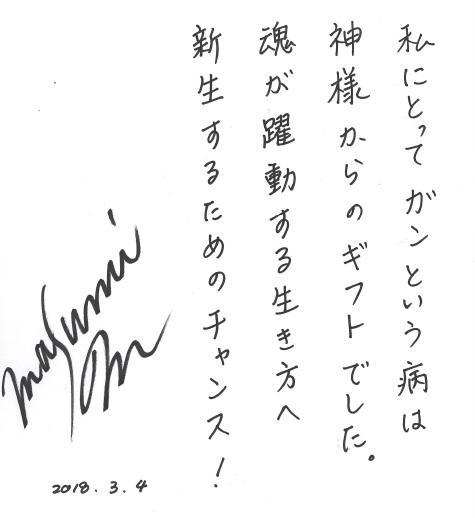 私にとってガンという病は
神様からのギフトでした。
魂が躍動する生き方へ
新生するためのチャンス!
masumi
2018.3.4